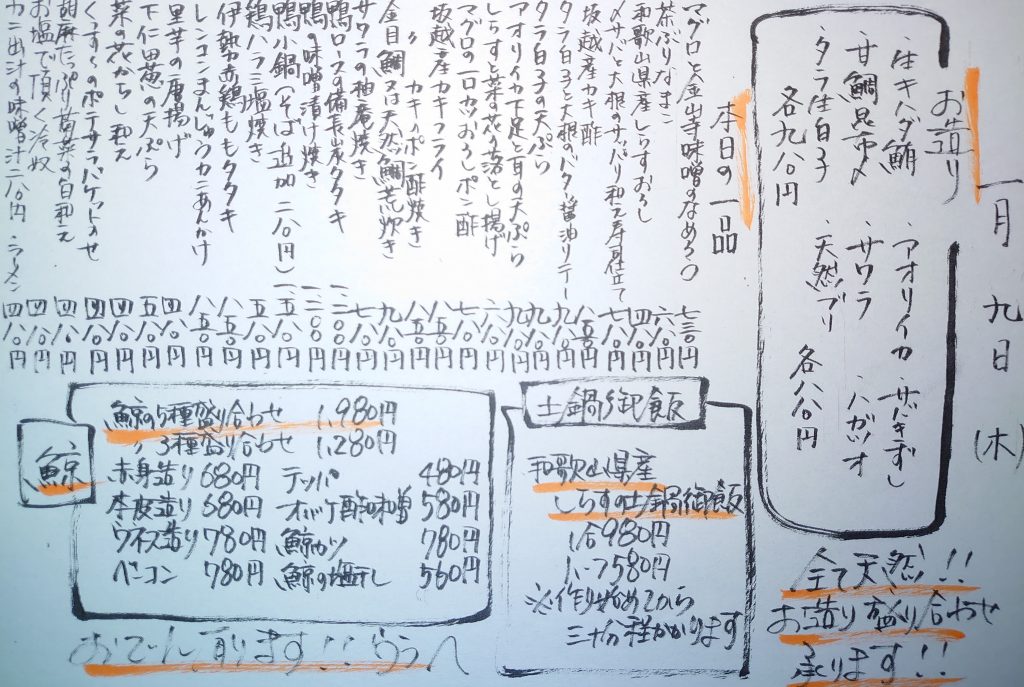 一月九日(木)
お造り
・生キハダ鮪
・甘鯛昆布〆
・タラ生白子
各九八〇円
・アオリイカ
・サワラ
・天然ブリ
・ハガツオ
各八八〇円
全て天然!!
お造り盛り合わせ
承ります!!
本日の一品
マグロと金山寺味噌のなめろう 七三〇円
茶ぶりなまこ 六八〇円
和歌山県産しらすおろし 四八〇円
〆サバと大根のサッパリ和え寿司仕立て 七八〇円
坂越産カキ酢 八五〇円
タラ白子と大根のバター醤油ソテー 九八〇円
タラ白子の天ぷら 九八〇円
アオリイカ下足と耳の天ぷら 九八〇円
しらすと菜の花の落とし揚げ 六八〇円
マグロの一口カツおろしポン酢 七八〇円
坂越産カキフライ 八五〇円
〃 カキのポン酢焼き 八五〇円
金目鯛又は天然鯛荒炊き 九八〇円
サワラの柚庵焼き 七八〇円
鴨ロースの備長炭タタキ 一、二〇〇円
鴨の味噌漬け焼き 一、二〇〇円
鴨小鍋(そば追加 二八〇円) 一、五八〇円
鶏ハラミ塩焼き 五八〇円
伊勢赤鶏ももタタキ 八五〇円
レンコンまんじゅうカニあんかけ 八五〇円
里芋の唐揚げ 四八〇円
下仁田葱の天ぷら 五八〇円
菜の花からし和え 四八〇円
くずし のポテサラバケットのせ 四八〇円
胡麻たっぷり菊菜の白和え 四八〇円
お塩で頂く冷奴 四八〇円
カニ出汁の味噌汁 二八〇円 ・ラーメン 四八〇円
土鍋御飯
和歌山県産
しらすの土鍋御飯
1合 980円
1、5〃 1580円
※作り始めてから
三十分程かかります
鯨
鯨の5種盛り合わせ 1,980円
〃 3種盛り合わせ 1,280円
赤身造り 680円 テッパ 480円
本皮造り 680円 オバケ酢味噌 580円
ウネス造り 780円 鯨カツ 780円
ベーコン 780円 鯨の塩干し 560円
おでん、有ります!! うらへ